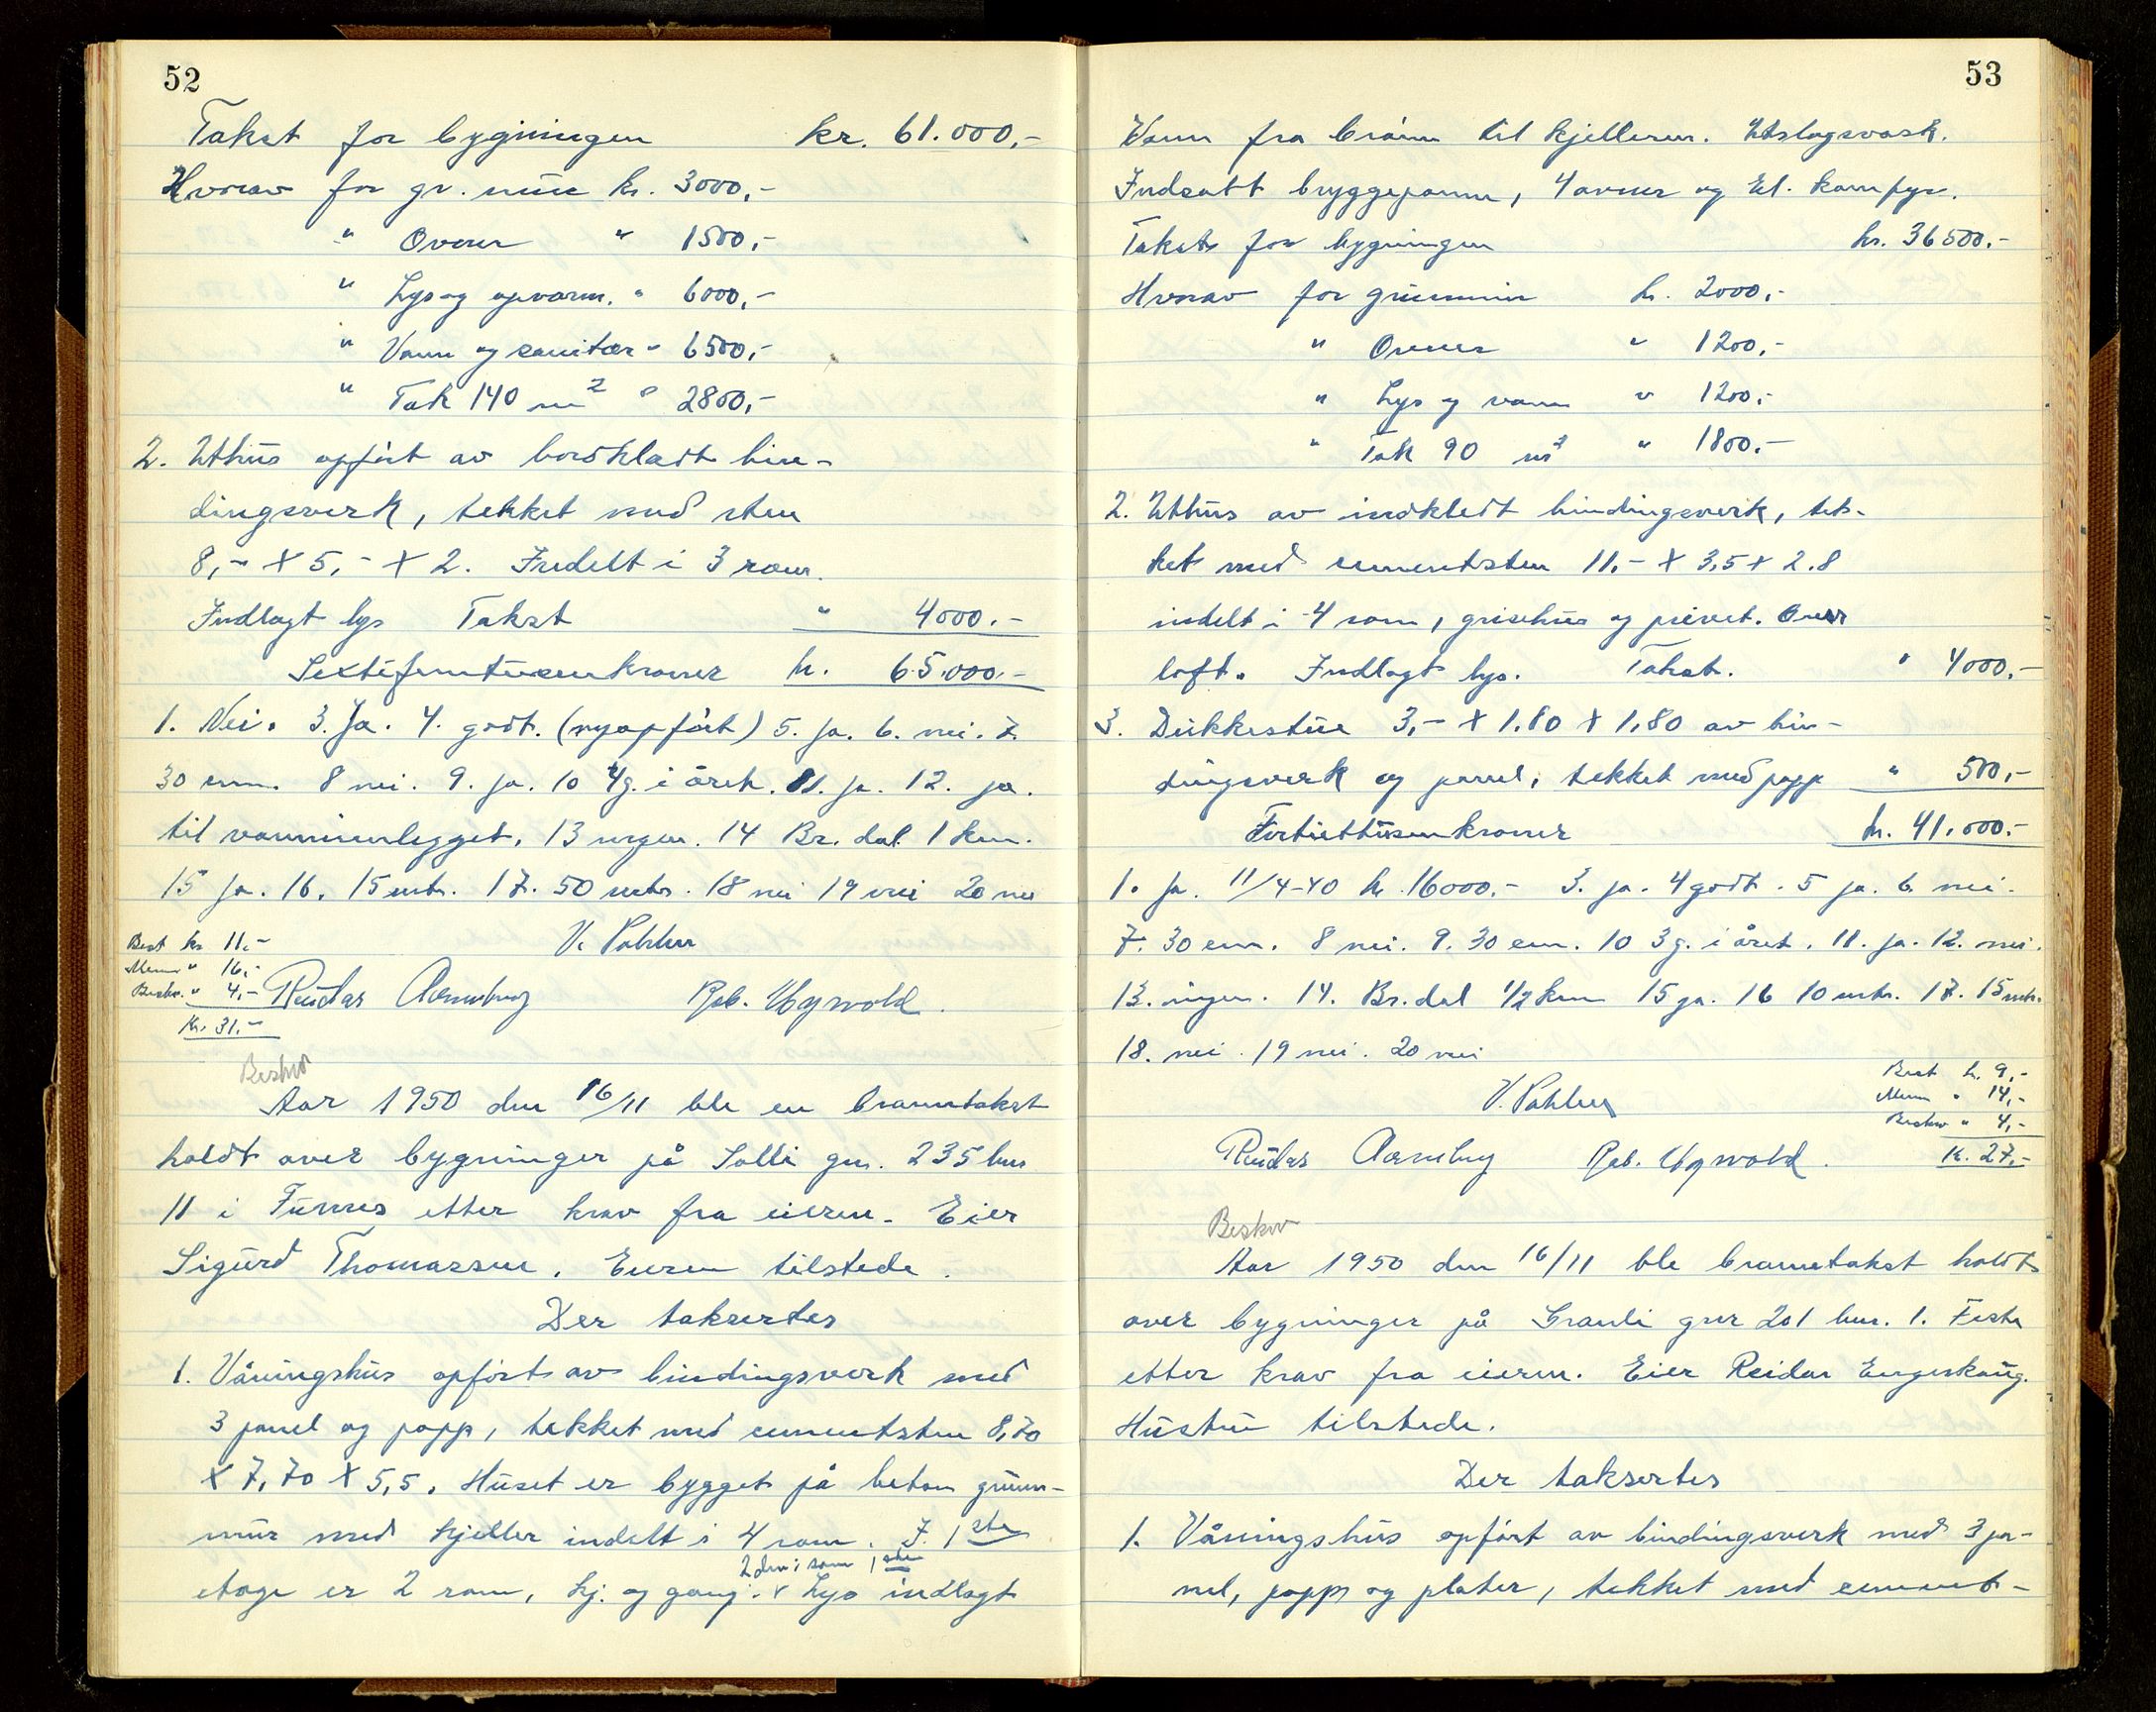 52
Takst for bygningen kr. 61.000,-
Hvorav for gr. mür kr. 3000,-
" Ovner " 1500,-
" Lys og opvarm. " 6000,-
" Vann og sanitær " 6500,-
" Tak 140 m2 " 2800,-
2. Uthüs opført av bordklædt bin-
dingsverk, tekket med sten
8,- x 5,- x 2. Indelt i 3 rom.
Indlagt lys Takst " 4000.-
Sextifemtusenkroner kr. 65.000.-
1. Nei. 3. Ja. 4. godt. (nyopført) 5. ja. 6. nei. 7.
30 cm. 8 nei. 9. ja. 10 4 g. i året. 11. ja. 12. ja.
til vannmenlegget. 13 ingen. 14 Br. dal. 1 km.
15 ja. 16. 15 mtr. 17. 50 mtr. 18 nei 19 nei 20 nei
Best kr 11.-
V. Pahlen
Menn " 16,-
Beskr. " 4,-
Reidar Aarnebug Rob. Ugsvold.
Kr. 31.-
Beskr
Aar 1950 den 16/11 ble en branntakst
holdt over bygninger på Solli gnr. 235 bnr
11 i Fürnes etter krav fra eieren. Eier
Sigürd Thomassen. Eieren tilstede.
Der taksertes
1. Våningshüs opført av bindingsverk med
3 panel og papp, tekket med cementsten 8,70
x 7,70 x 5,5. Hüset er bygget på beton grünn-
mür med kjeller indelt i 4 rom. I. 1ste
2den som 1ste
etage er 2 rom, kj. og gang. v Lys indlagt
53
Vann fra brönn til kjelleren. Utslagsvask.
Indsatt bryggepanne, 4 ovner og El. komfyr.
Takst for bygningen kr. 36500.-
Hvorav for grünnmür kr. 2000,-
" Ovner " 1200,-
" Lys og vann " 1200,-
" Tak 90 m2 " 1800.-
2. Uthüs av indkledt bindingsverk, tek-
ket med cementsten 11,- x 3,5 x 2.8
indelt i 4 rom, grisehüs og privet. Over
loft. Indlagt lys. Takst. " 4000.-
3. Dükkestüe 3,- x 1,80 x 1,80 av bin-
dingsverk og panel, tekket med papp " 500,-
Førtiettüsenkroner kr. 41.000.-
1. Ja. 11/4-40 kr. 16000.- 3. ja. 4 godt. 5 ja. 6 nei.
7. 30 cm. 8 nei. 9. 30 cm. 10 3 g. i året. 11. ja. 12. nei.
13. ingen. 14. Br. dal 1/2 km 15 ja. 16 10 mtr. 17. 15 mtr.
18. nei. 19 nei. 20 nei
Best kr. 9,-
V. Pahlen
Menn " 14,-
Beskr " 4,-
Reidar Aarnebug Rob. Ugsvold.
Kr. 27.-
Beskr
Aar 1950 den 16/11 ble brannetakst holdt
over bygninger på Granli gnr 201 bnr. 1. Feste
etter krav fra eieren. Eier Reidar Engeskaüg.
Hüstrü tilstede.
Der taksertes
1. Våningshüs opført av bindingsverk med 3 pa-
nel, papp og plater, tekket med cement-